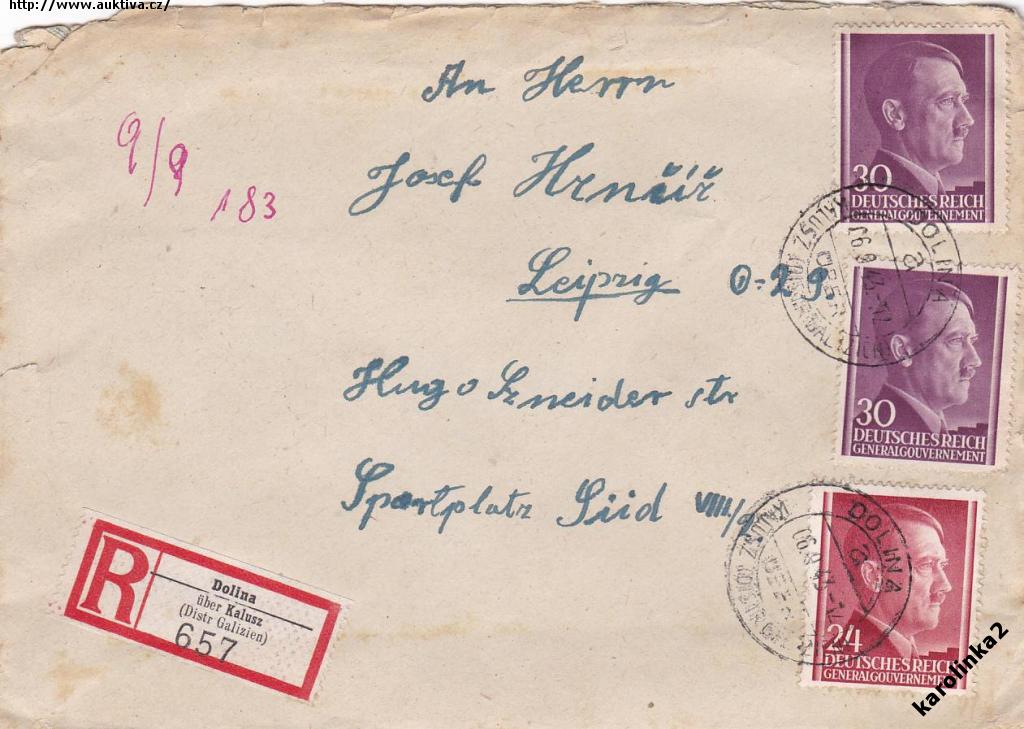 http://www.auktiva.cz/
An Herrn
Josef Hrnčiř
Leipzig O-29
Hugo Szneider str
Sportplatz Süd VIII/9
9/9
183
30
DEUTSCHES REICH
GENERALGOUVERNEMENT
DOLINA
a
ÜBER
KALUSZ (DISTR GALIZIEN)
30
DEUTSCHES REICH
GENERALGOUVERNEMENT
DOLINA
KALUSZ
24
DEUTSCHES REICH
GENERALGOUVERNEMENT
R
Dolina
über Kalusz
(Distr Galizien)
657
karolinka2